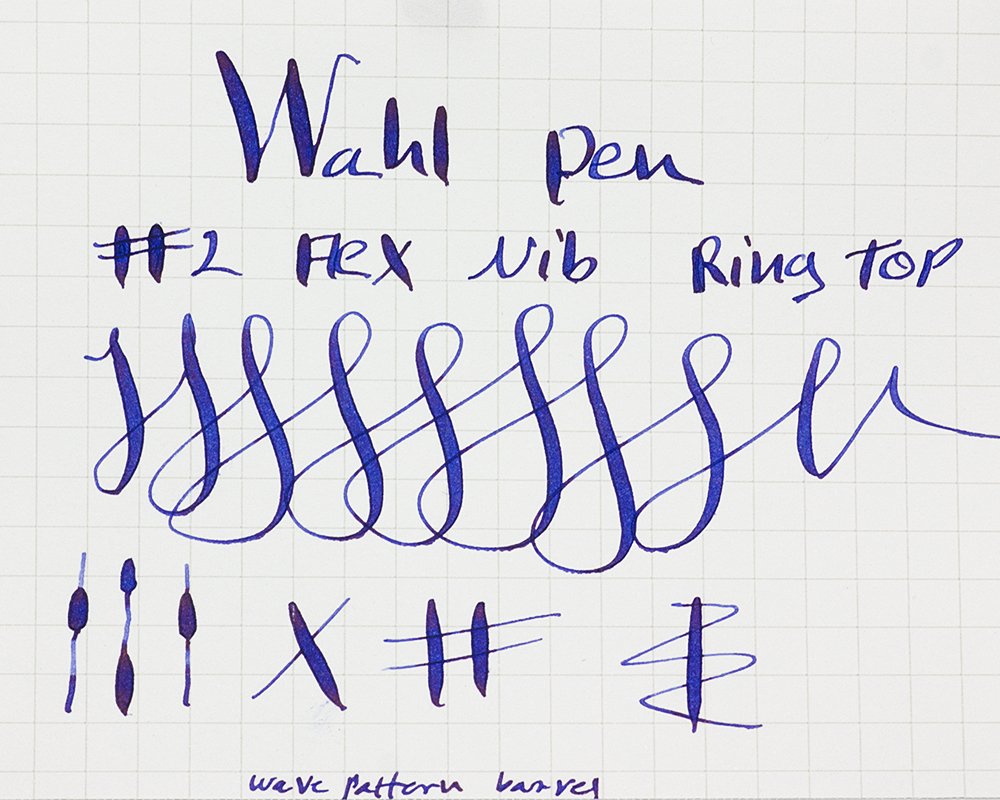 Wahl Pen
#2 Flex Nib Ring Top
X #
wave pattern barrel